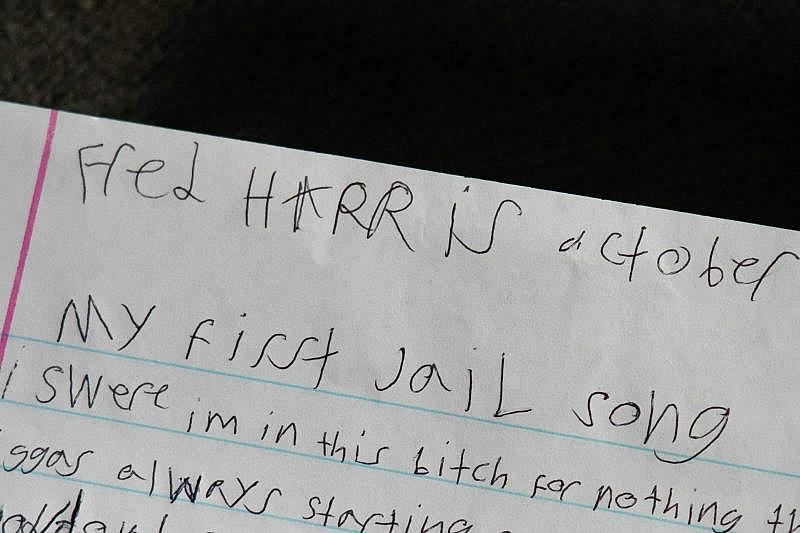 Fred HARRis october
My first Jail song
i swere im in this bitch for nothing th
iggas always starting